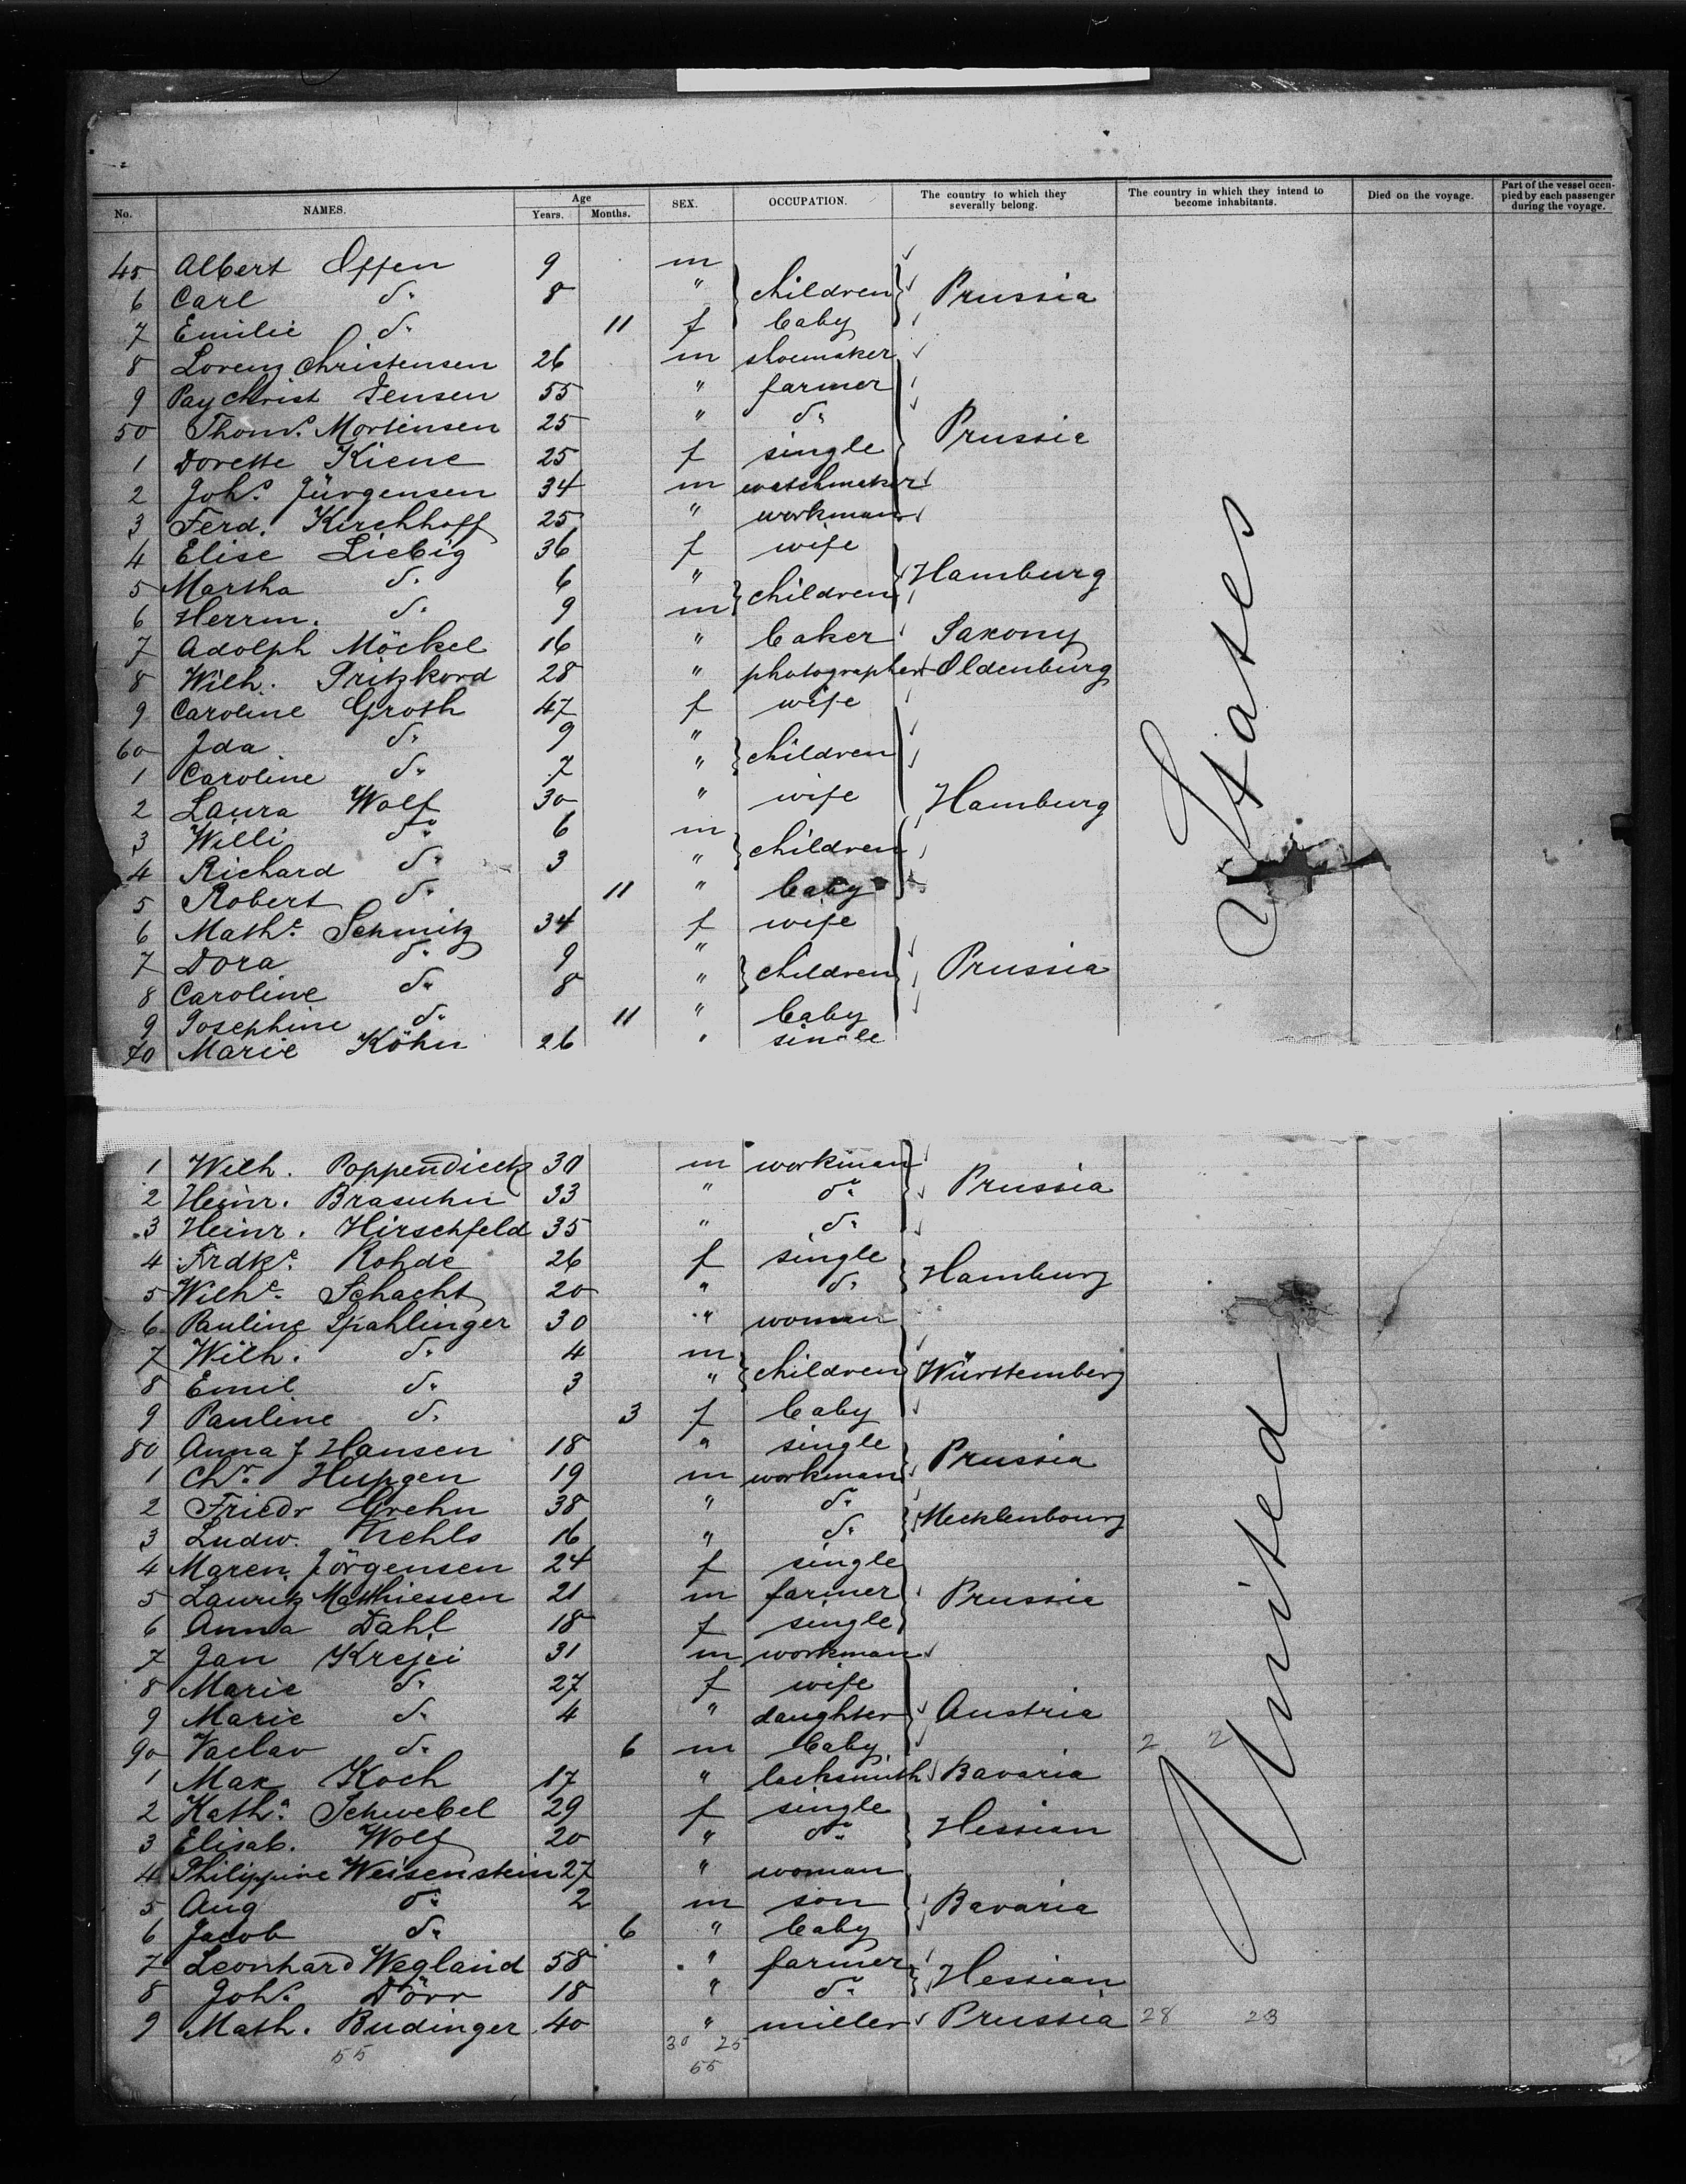 No. NAMES. Age Years. Months. SEX. OCCUPATION. The country to which they severally belong. The country in which they intend to become inhabitants. Died on the voyage. Part of the vessel occupied by each passenger during the voyage.
45 Albert Offen 9 m
6 Carl do 8 " children Prussia
7 Emilie do 11 f baby
8 Lorenz Christensen 26 m shoemaker
9 Pay Christ Jensen 55 " farmer
50 Thoms. Mortensen 25 " do Prussia
1 Dorette Kiene 25 f single
2 Johs. Jürgensen 34 m watchmaker
3 Ferd. Kirchhoff 25 " workman
4 Elise Liebig 36 f wife
5 Martha do 6 " children Hamburg
6 Herrm. do 9 m
7 Adolph Möckel 16 " baker Saxony
8 Wilh. Pritzkord 28 " photographer Oldenburg
9 Caroline Groth 47 f wife
60 Ida do 9 " children
1 Caroline do 7 "
2 Laura Wolf 30 " wife Hamburg
3 Willi do 6 m children
4 Richard do 3 "
5 Robert do 11 " baby
6 Mathe. Schmitz 34 f wife
7 Dora do 9 " children Prussia
8 Caroline do 8 "
9 Josephine do 11 " baby
70 Marie Köhn 26 " single
1 Wilh. Poppendieck 30 m workman
2 Heinr. Brasuhn 33 " do Prussia
3 Heinr. Hirschfeld 35 " do
4 Frdke. Rohde 26 f single Hamburg
5 Wilhe. Schacht 20 " do
6 Pauline Spahlinger 30 " woman
7 Wilh. do 4 m children Württemberg
8 Emil do 3 "
9 Pauline do 3 f baby
80 Anna J Hansen 18 " single Prussia
1 Chr. Hupgen 19 m workman
2 Friedr Grehn 38 " do Mecklenbourg
3 Ludw. Nehls 16 " do
4 Maren Jörgensen 24 f single
5 Lauritz Matthiessen 21 m farmer Prussia
6 Anna Dahl 18 f single
7 Jan Krejci 31 m workman
8 Marie do 27 f wife
9 Marie do 4 " daughter Austria
90 Vaclav do 6 m baby 2 2
1 Max Koch 17 " locksmith Bavaria
2 Katha. Schwebel 29 f single Hessian
3 Elisab. Wolf 20 " do
4 Philippine Weisenstein 27 " woman
5 Aug do 2 m son Bavaria
6 Jacob do 6 " baby
7 Leonhard Wegland 58 " farmer Hessian
8 Johs. Dörr 18 " do
9 Math. Budinger 40 " miller Prussia 28 23
55 30 25
55
United States